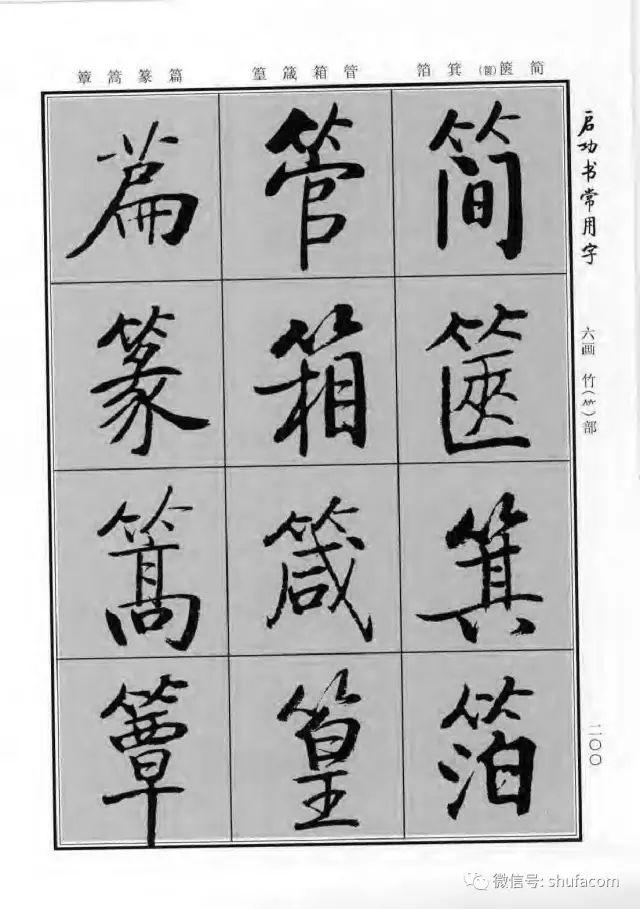 启功书常用字
六画 竹(⺮)部
二〇〇
简 箧(篋) 箕 箔
管 箱 箴 篁
篇 篆 篙 簟
简
篋
箕
箔
管
箱
箴
篁
篇
篆
篙
簟
微信号: shufacom